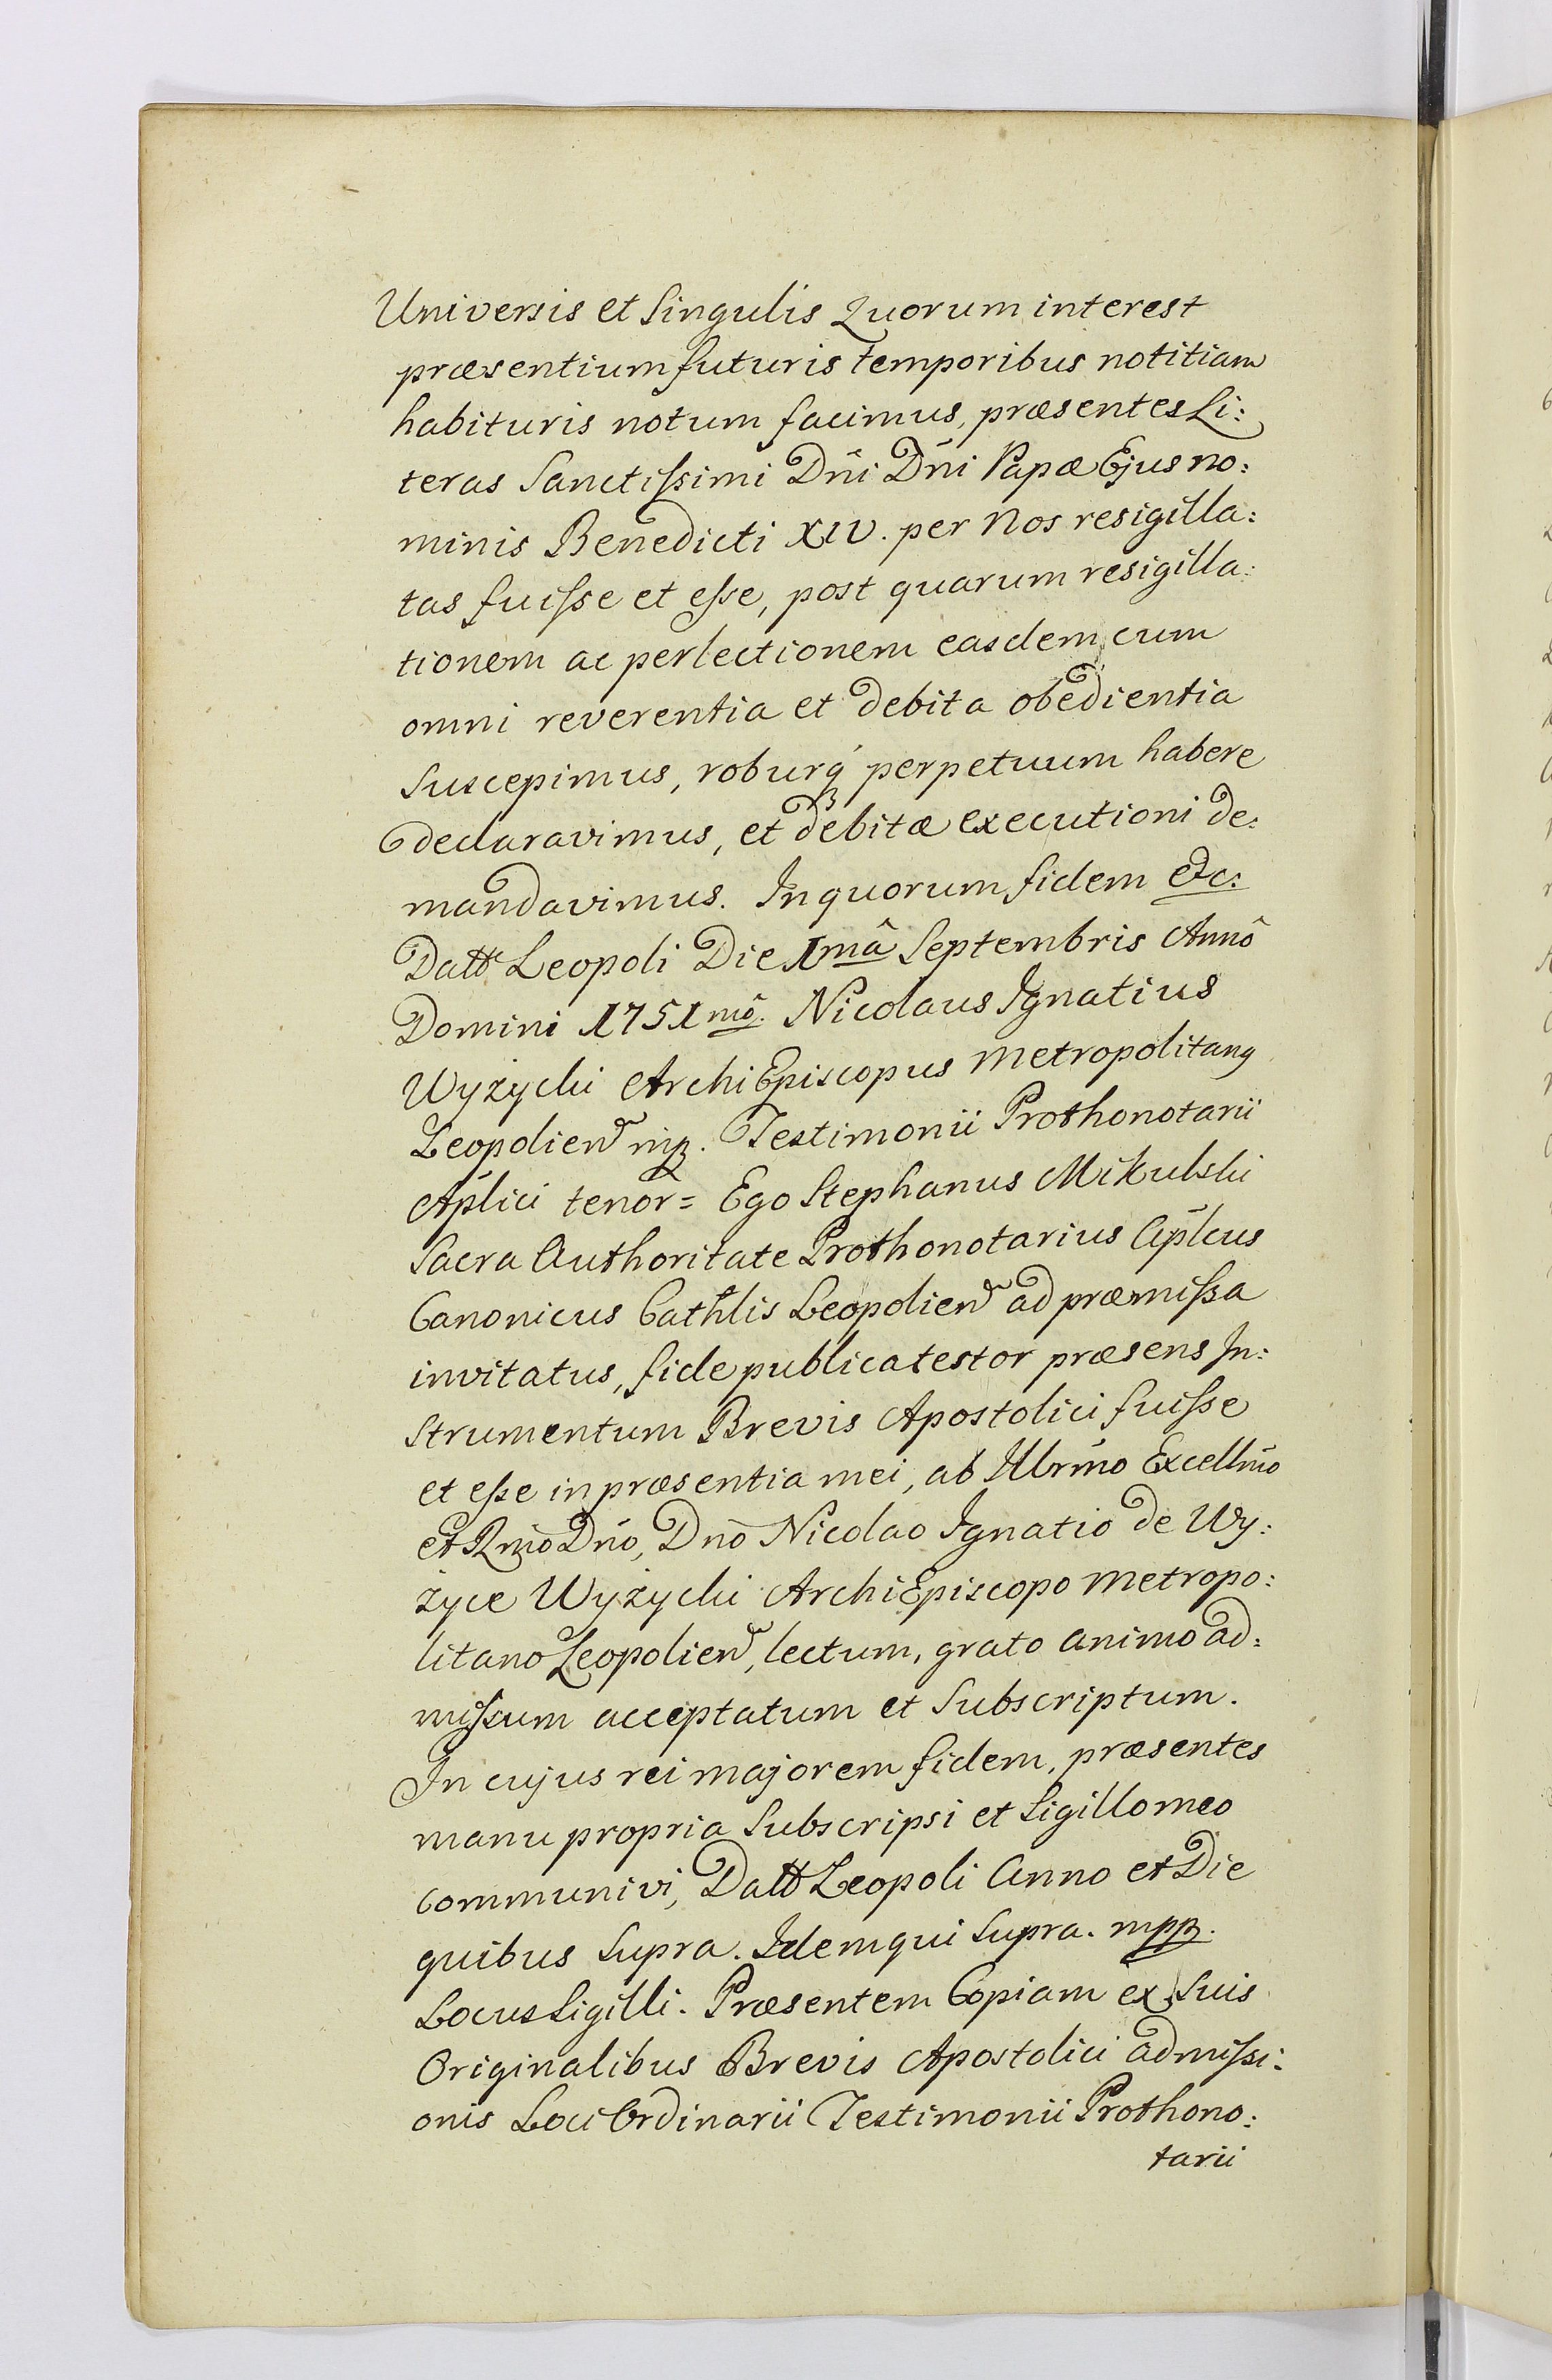 Universis et Singulis Quorum interest
præsentium futuris temporibus notitiam
habituris notum facimus, præsentes Li:
teras Sanctissimi Dñi Dñi Papæ Ejus no:
minis Benedicti XIV. per Nos resigilla:
tas fuisse et esse, post quarum resigilla:
tionem ac perlectionem easdem cum
omni reverentia et debita obedientia
Suscepimus, roburq́ perpetuum habere
declaravimus, et debitæ executioni de:
mandavimus. In quorum fidem etc:
Datt Leopoli Die 1mâ Septembris Annô
Domini 1751mô. Nicolaus Ignatius
Wyżycki ArchiEpiscopus Metropolitang
Leopolien mp. Testimonii Prothonotarii
Aplici tenor = Ego Stephanus Mikulski
Sacra Authoritate Prothonotarius Aplcus
Canonicus Cathlis Leopolien ad præmissa
invitatus, fide publica testor præsens In:
strumentum Brevis Apostolici fuisse
et esse in præsentia mei, ab Illvrmo Excellmo
et Rmo Dño, Dno Nicolao Ignatio de Wy:
życe Wyżycki ArchiEpiscopo Metropo:
litano Leopolien, lectum, grato animo ad:
missum acceptatum et Subscriptum.
In cujus rei majorem fidem, præsentes
manu propria Subscripsi et Sigillo meo
communivi, Datt Leopoli Anno et Die
quibus Supra. Idem qui Supra. mpp.
Locus Sigilli. Præsentem Copiam ex Suis
Originalibus Brevis Apostolici admissi:
onis Loci Ordinarii Testimonii Prothono:
tarii